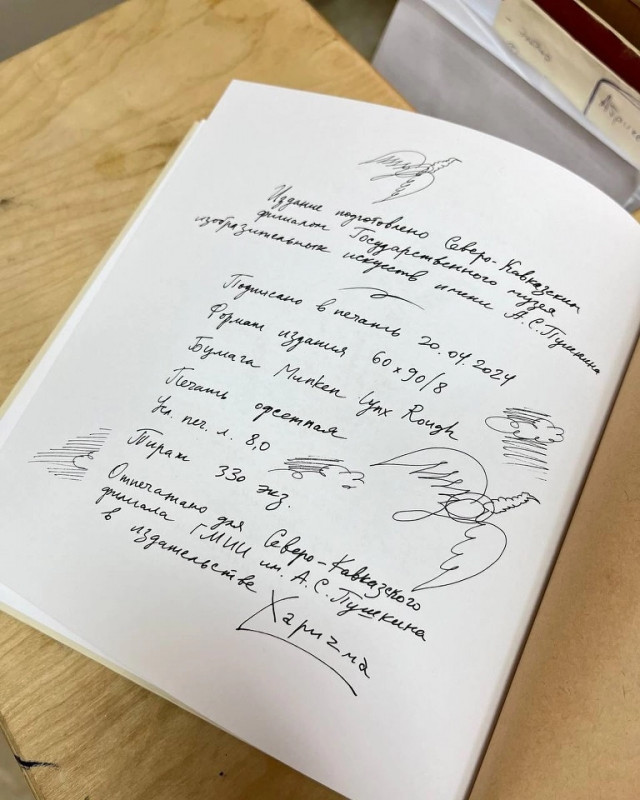 Издание подготовлено Северо-Кавказским
филиалом Государственного музея
изобразительных искусств имени А.С.Пушкина
Подписано в печать 20.04.2024
Формат издания 60 x 90/8
Бумага Munken Lynx Rough
Печать офсетная
Усл. печ. л. 8,0
Тираж 330 экз.
Отпечатано для Северо-Кавказского
филиала ГМИИ им. А.С.Пушкина
в издательстве
Харизма